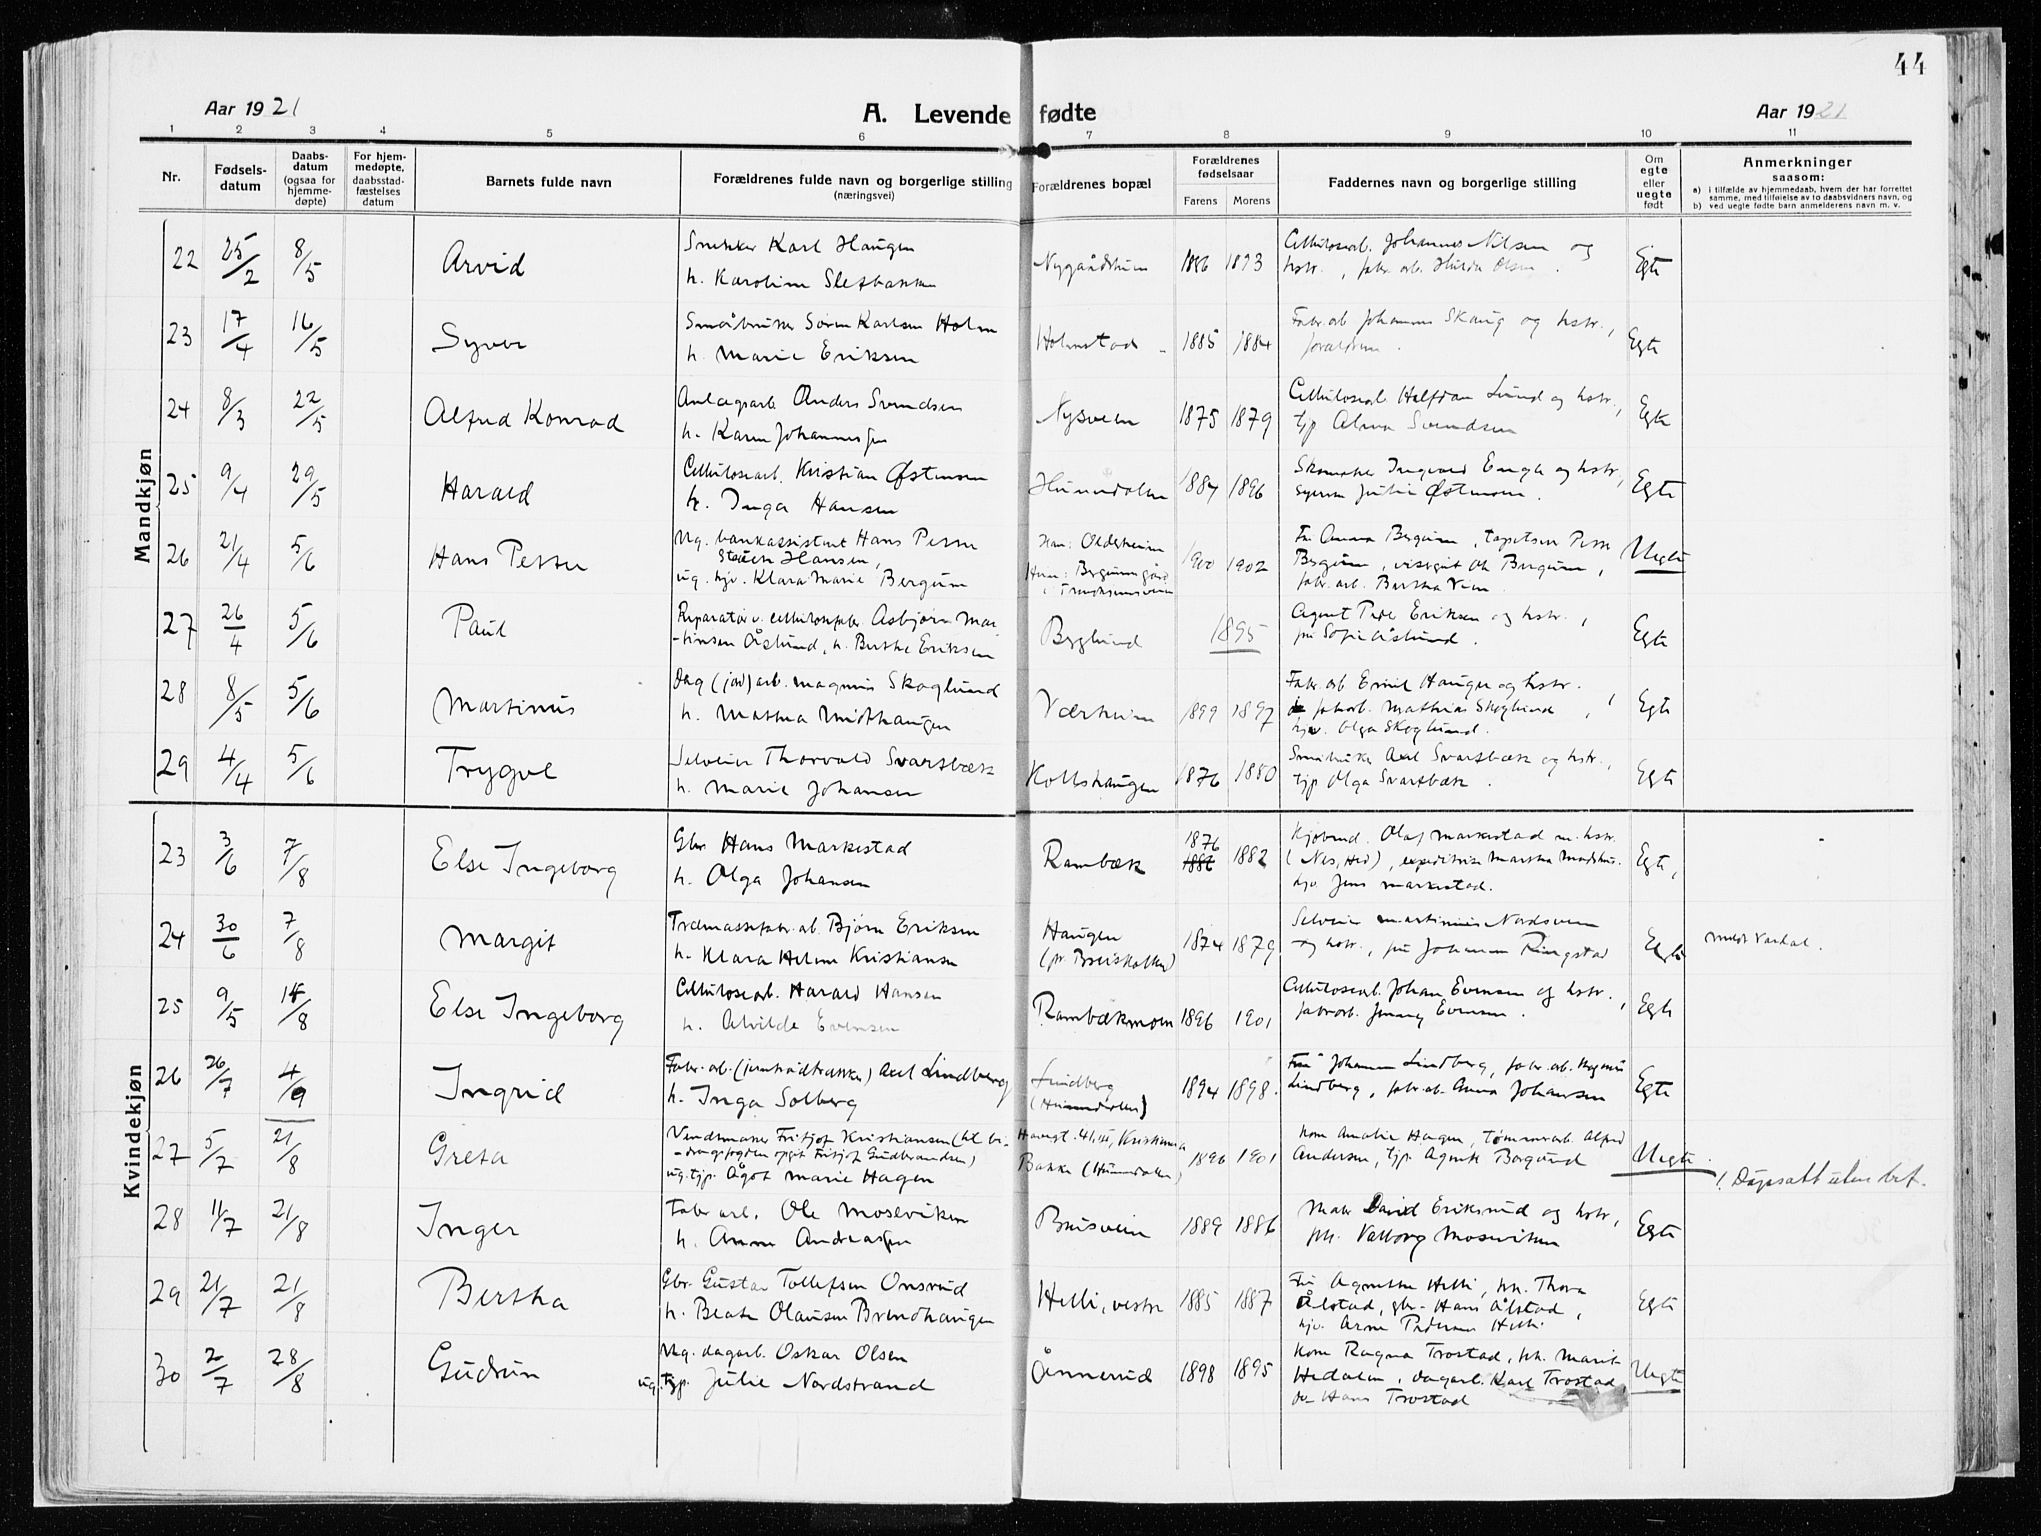 44
Aar 1921
A. Levende fødte
Aar 1921
1 2 3 4 5 6 7 8 9 10 11
Nr.
Fødsels-
datum
Daabs-
datum
(ogsaa for
hjemme-
døpte)
For hjem-
medøpte,
daabsstad-
fæstelses
datum
Barnets fulde navn
Forældrenes fulde navn og borgerlige stilling
(næringsvei)
Forældrenes bopæl
Forældrenes
fødselsaar
Farens Morens
Faddernes navn og borgerlige stilling
Om
egte
eller
uegte
født
Anmerkninger
saasom:
a) i tilfælde av hjemmedaab, hvem der har forrettet
samme, med tilføielse av to daabsvidners navn, og
b) ved uegte fødte barn anmelderens navn m. v.
Mandkjøn
22 25/2 8/5 Arvid
Snekker Karl Haugen
h. Karoline Sletbakken
Nygaardstuen 1893
Cellulosearb. Johannes Nilsen og
hstr., fabr. arb. Hulda Olsen.
Egte
23 17/4 16/5 Syver
Småbruker Søren Karlsen Holm
h. Marie Eriksen
Holmstad 1885 1884
Fabr. arb Johannes Skaug og hstr.,
forældrene.
Egte
24 8/3 22/5 Alfred Konrad
Anlægsarb. Anders Svendsen
h. Karen Johannesen
Nysveen 1875 1879
Cellulosearb. Halfdan Lund og hstr.,
tjp Alma Svendsen
Egte
25 9/4 29/5 Harald
Cellulosearb. Kristian Østensen
h. Inga Hansen
Hunndalen 1887 1896
Skomaker Ingvard Enger og hstr.,
syerske Julie Østensen.
Egte
26 21/4 5/6 Hans Petter
Ug. bankassistent Hans Petter
Steen Hansen,
ug. hjv. Klara Marie Bergum
Han: Olderheim
Hun: Bergumgård
i Trondhjemsveien
1900 1902
Fr. Anna Bergum, tapetserer Petter
Bergum, visergut Ole Bergum,
fabr. arb. Bertha Vien.
Uegte
27 26/4 5/6 Paul
Reparatør v. cellulosefabr. Asbjørn Mar-
-tinsen Åslund, h. Berthe Eriksen
Byglund 1895
Agent Peder Eriksen og hstr.,
pu Sofie Åslund.
Egte
28 8/5 5/6 Martinus
Dag (jord) arb. Magnus Skoglund
h. Mathea Midthaugen
Værheim 1899 1897
Fabr. arb Emil Haugen og hstr.
fabarb. Mathias Skoglund,
hjv. Olga Skoglund.
Egte
29 4/4 5/6 Trygve
Selveier Thorvald Svartbæk
h. Marie Johansen
Kollshaugen 1876 1880
Småbruker Axel Svartbæk og hstr.,
tjp Olga Svartbæk.
Egte
Kvindekjøn
23 3/6 7/8 Else Ingeborg
Gbr Hans Markestad
h. Olga Johansen
Rambæk 1876 1882
Kjøbmd. Olaf Markestad m. hstr.
(Nes, Hed), expeditrise Martha Madshus.
hjv. Jens Markestad.
Egte,
24 30/6 7/8 Margit
Træmassefabr. arb. Bjørn Eriksen
h. Klara Helene Kristiansen
Haugen
(pr. Breiskallen)
1874 1879
Selveier Martinius Nordsveen
og hstr., pu Johanne Ringstad
Egte
Meldt Vardal.
25 9/5 14/8 Else Ingeborg
Celluloseart. Harald Hansen
h. Alvilde Evensen
Rambækmoen 1896 1901
Celluloseart. Johan Evensen og hstr.,
fabrarb. Jenny Evensen.
Egte
26 26/7 4/9 Ingrid
Fabr. arb. (jerntrådtrækker) Axel Lindberg
h. Inga Solberg
Lindberg
(Hunndalen)
1894 1898.
Fru Johanne Lindberg, fabr. arb. Magnus
Lindberg, fabr. arb. Anna Johansen
Egte
27 5/7 21/8 Greta
Vindsmaker Fritjof Kristiansen (til bi-
-dragsfogden opgit Fritjof Gudbrandsen)
ug. tjp. Ågot Marie Hagen
Havegt. 41 III, Kristiania
Bakke (Hunndalen)
1896 1901
Kone Amalie Hagen, tømmerarb. Alfred
Andersen, tjp. Agnete Borgund
Uegte.
28 11/7 21/8 Inger
Fabr arb. Ole Moseviken
h. Anne Andreassen
Brusveen 1889 1886
Maler David Eriksrud og hstr.,
pk. Valborg Moseviken
Egte
29 21/7 21/8 Bertha
Gbr. Gustav Tollefsen Onsrud
h. Beate Olausen Brendhaugen
Helli, vestre 1885 1887
Fru Agnethe Helli, pk. Thora
Ålstad, gbr. Hans Ålstad,
hjv. Arne Pedersen Helli.
Egte
30 2/7 28/8 Gudrun
Ug. dagarb. Oskar Olsen
ug. tjp. Julie Nordstrand
Ånnerud 1898 1895
Kone Ragna Trostad, pk. Marit
Hedalen, dagarb. Karl Trostad
do Hans Trostad
Uegte